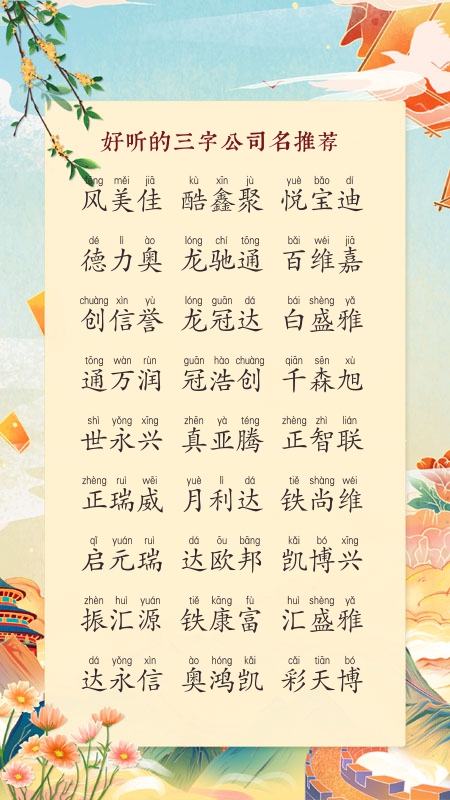 好听的三字公司名推荐
fēng měi jiā kù xīn jù yuè bǎo dí
风美佳 酷鑫聚 悦宝迪
dé lì ào lóng chí tōng bǎi wéi jiā
德力奥 龙驰通 百维嘉
chuàng xìn yù lóng guān dá bái shèng yǎ
创信誉 龙冠达 白盛雅
tōng wàn rùn guān hào chuàng qiān sēn xù
通万润 冠浩创 千森旭
shì yǒng xīng zhēn yà téng zhèng zhì lián
世永兴 真亚腾 正智联
zhèng ruì wēi yuè lì dá tiě shàng wéi
正瑞威 月利达 铁尚维
qǐ yuán ruì dá ōu bāng kǎi bó xīng
启元瑞 达欧邦 凯博兴
zhèn huì yuán tiě kāng fù huì shèng yǎ
振汇源 铁康富 汇盛雅
dá yǒng xìn ào hóng kǎi cǎi tiān bó
达永信 奥鸿凯 彩天博